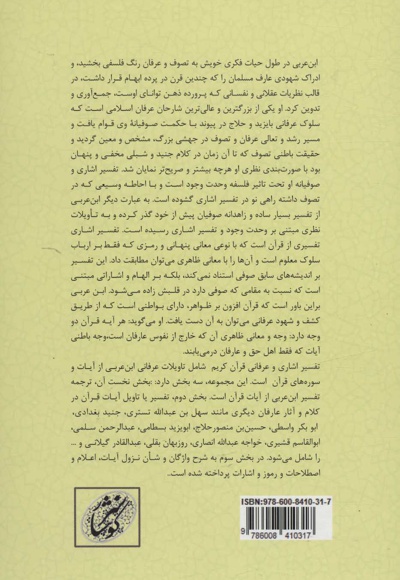 ابن‌عربی در طول حیات فکری خویش به تصوف و عرفان رنگ فلسفی بخشید، و
ادراک شهودی عارف مسلمان را که چندین قرن در پرده ابهام قرار داشت، در
قالب نظریات عقلانی و نفسانی که پرورده ذهن توانای اوست، جمع‌آوری و
تدوین کرد. او یکی از بزرگترین و عالی‌ترین شارحان عرفان اسلامی است که
سلوک عرفانی بایزید و حلاج در پیوند با حکمت صوفیانهٔ وی قوام یافت و
مسیر رشد و تعالی عرفان و تصوف در جهشی بزرگ، مشخص و معین گردید و
حقیقت باطنی تصوف که تا آن زمان در کلام جنید و شبلی مخفی و پنهان
بود با صورت‌بندی نظری او هرچه بیشتر و صریح‌تر نمایان شد. تفسیر اشاری و
صوفیانه او تحت تاثیر فلسفه وحدت وجود است و با احاطه وسیعی که در
تصوف داشته راهی نو در تفسیر اشاری گشوده است. به عبارت دیگر ابن‌عربی
از تفسیر بسیار ساده و زاهدانه صوفیان پیش از خود گذر کرده و به تأویلات
نظری مبتنی بر وحدت وجود و تفسیر اشاری رسیده است. تفسیر اشاری
تفسیری از قرآن است که با نوعی معانی پنهانی و رمزی که فقط بر ارباب
سلوک معلوم است و آن‌ها را با معانی ظاهری می‌توان مطابقت داد، این تفسیر
بر اندیشه‌های سابق صوفی استناد نمی‌کند، بلکه بر الهام و اشاراتی مبتنی
است که نسبت به مقامی که صوفی دارد در قلبش زاده می‌شود. ابن عربی
براین باور است که قرآن افزون بر ظواهر، دارای بواطنی است که از طریق
کشف و شهود عرفانی می‌توان به آن دست یافت. او می‌گوید: هر آیه قرآن دو
وجه دارد: وجه و معانی ظاهری آن که خارج از نفوس عارفان است،وجه باطنی
آیات که فقط اهل حق و عارفان درمی‌یابند.
تفسیر اشاری و عرفانی قرآن کریم شامل تاویلات عرفانی ابن‌عربی از آیات و
سوره‌های قرآن است. این مجموعه، سه بخش دارد: بخش نخست آن، ترجمه
تفسیر ابن‌عربی از آیات قرآن است. بخش دوم، تفسیر یا تاویل آیات قرآن در
کلام و آثار عارفان دیگری مانند سهل بن عبدالله تستری، جنید بغدادی،
ابو بکر واسطی، حسین‌بن منصورحلاج، ابویزید بسطامی، عبدالرحمن سلمی،
ابوالقاسم قشیری، خواجه عبدالله انصاری، روزبهان بقلی، عبدالقادر گیلانی و ...
را شامل می‌شود. در بخش سوم به شرح واژگان و شأن نزول آیات، اعلام و
اصطلاحات و رموز و اشارات پرداخته شده است.
ISBN:978-600-8410-31-7
9 786008 410317